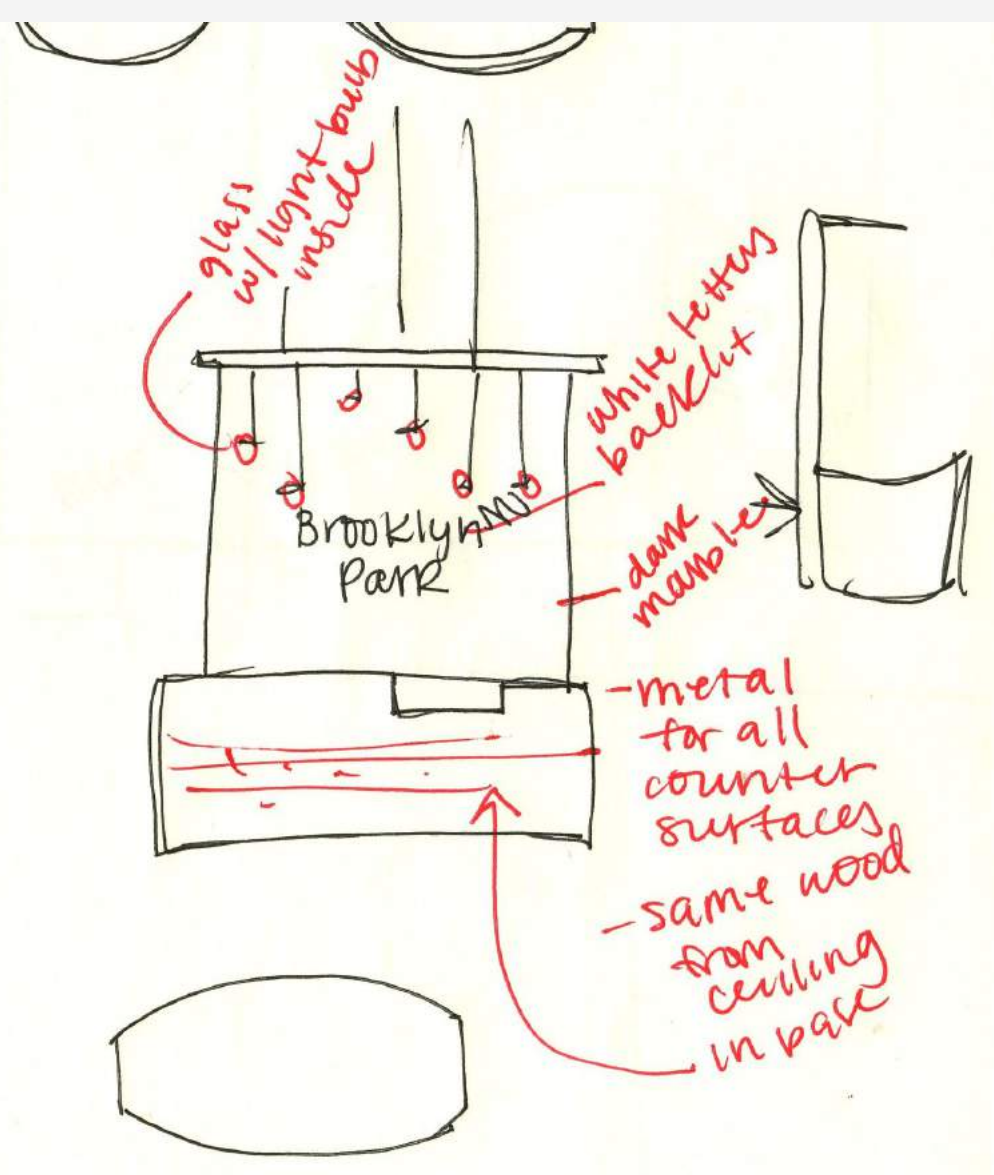 glass
w/ light bulb
inside
white letters
backlit
Brooklyn
Park
dark
marble
- metal
for all
counter
surfaces
- same wood
from
ceiling
in base